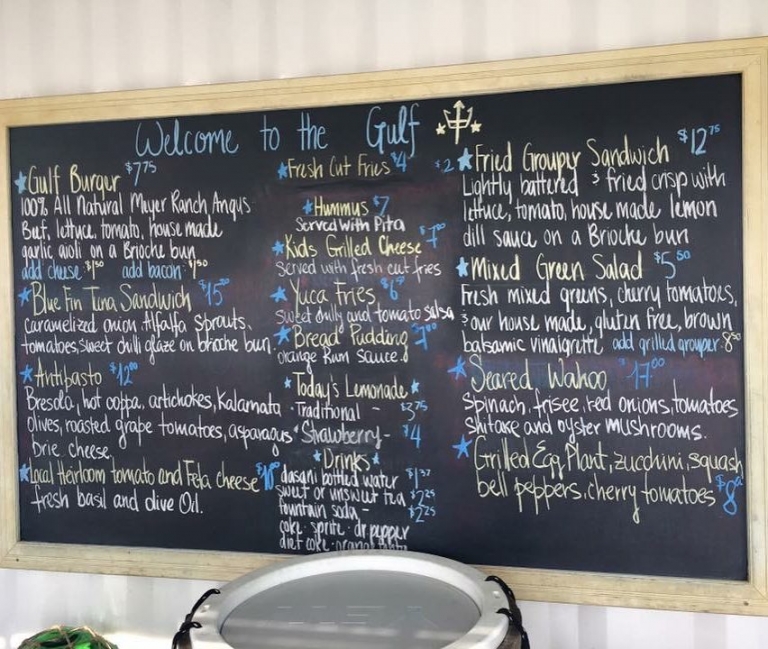 Welcome to the Gulf
Gulf Burger $7.75
100% All Natural Meyer Ranch Angus
Beef, lettuce, tomato, house made
garlic aioli on a Brioche bun
add cheese $1.50 add bacon $1.50
Blue Fin Tuna Sandwich $15
Caramelized onion Alfalfa Sprouts,
tomatoes, sweet chili glaze on brioche bun
Antibasto $12.00
Bresola, hot coppa, artichokes, Kalamata
olives, roasted grape tomatoes, asparagus
brie cheese.
Local Heirloom tomato and Feta cheese $10
fresh basil and olive Oil.
Fresh Cut Fries $4
Hummus $7
Served With Pita
Kids Grilled Cheese $7.00
Served with fresh cut fries
Yuca Fries $6
sweet chilly and tomato salsa
Bread Pudding $7.00
orange Rum sauce
Today's Lemonade
Traditional - $2.75
Strawberry - $4
Drinks
dasani bottled water $1.37
sweet or unsweet tea $2.25
fountain soda - $2.25
coke · sprite · dr pepper
diet coke · orange
$2
Fried Grouper Sandwich $12.75
Lightly battered & fried crisp with
lettuce, tomato, house made lemon
dill sauce on a Brioche bun
Mixed Green Salad $5.50
Fresh mixed greens, cherry tomatoes,
& our house made, gluten free, brown
balsamic vinaigrette add grilled grouper 8.50
Seared Wahoo $17.00
Spinach, frisee, red onions, tomatoes
shitake and oyster mushrooms.
Grilled Egg Plant, zucchini, squash
bell peppers, cherry tomatoes $8